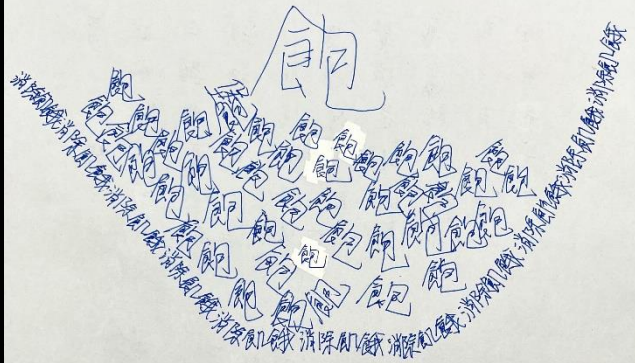 飽
飽
飽飽飽飽飽飽飽
飽飽飽飽飽飽飽飽飽飽
飽飽飽飽飽飽飽飽飽飽
飽飽飽飽飽飽飽飽
飽飽飽飽飽飽
飽飽飽飽飽
消除飢餓消除飢餓消除飢餓消除飢餓消除飢餓消除飢餓消除飢餓消除飢餓消除飢餓消除飢餓消除飢餓